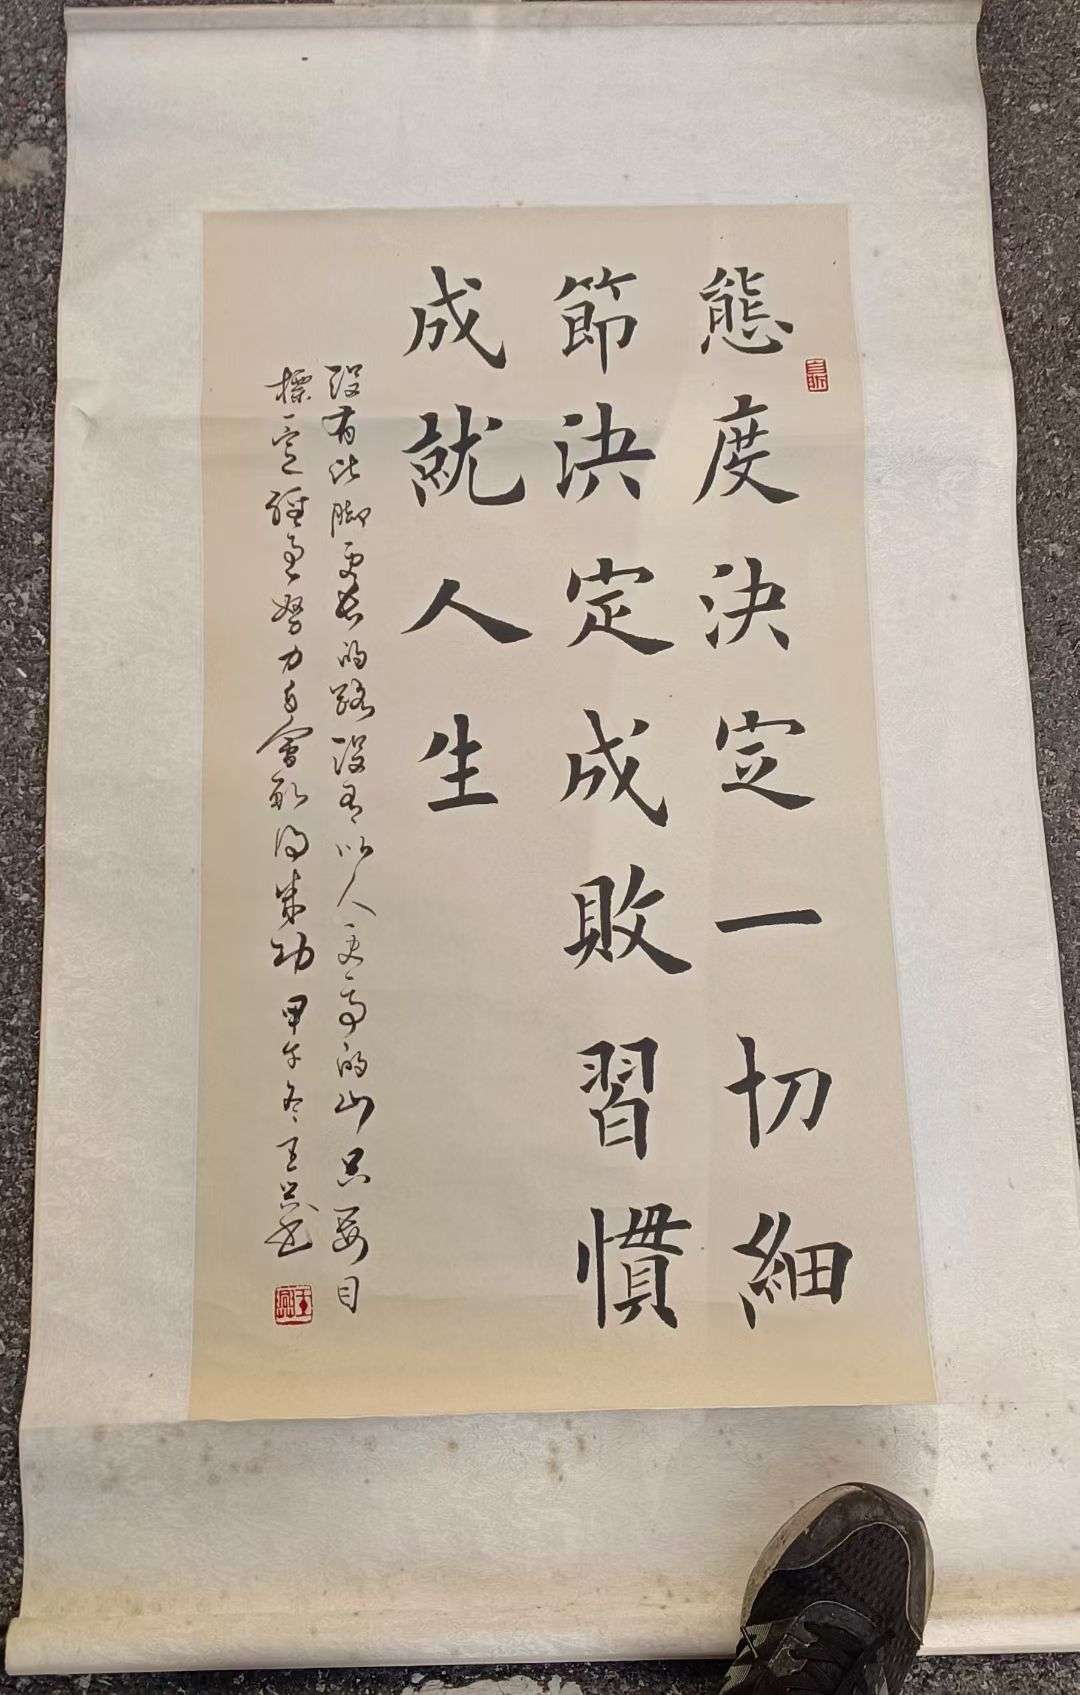 態度決定一切細
節決定成敗習慣
成就人生
没有比脚更長的路没有以人更高的山只要目
標一定經過努力才會取得成功 甲午冬王